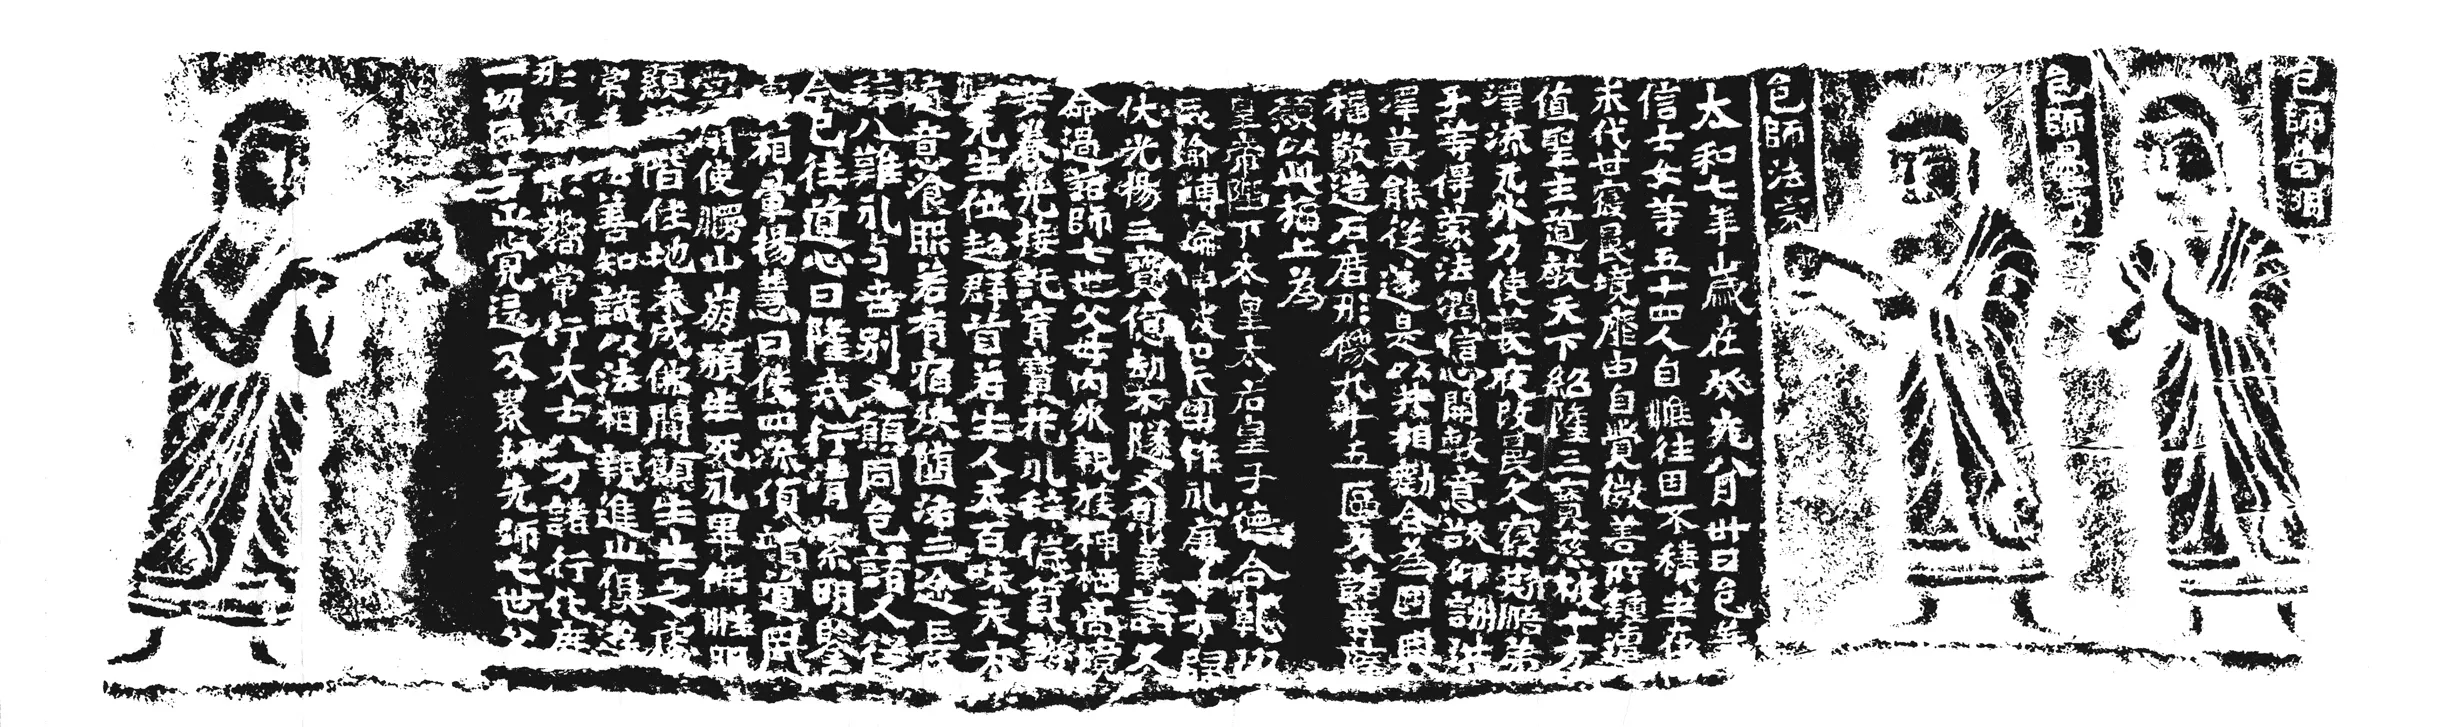 邑師普明
邑師曇秀
邑師法宗
太和七年歲在癸亥八月卅日邑義
信士女等五十四人自惟往因不積生在
末代甘寢昏境靡由自覺微善所鍾遭
值聖主道教天下紹隆三寶慈被十方
澤流无外乃使長夜改昬久寢斯悟弟
子等得蒙法潤信心開敷意欲仰詶洪
澤莫能從遂是以共相勸合為國興
福敬造石廟形像九十五區及諸菩薩
願以此福上為
皇帝陛下太皇太后皇子德合乾坤
威踰轉輪神被四天國祚永康十方歸
伏光揚三寶億劫不隧又願義諸人
命過諸師七世父母內外親族神栖高境
安養光接託育寶花永辭穢質證
悟无生位超群首若生人天百味天衣
隨意飡服若有宿殃墮洛三途長
辭八難永与苦別又願同邑諸人從
今已往道心日隆戒行清潔明鑒
實相暈揚慧日使四流傾竭道風
堂扇使慢山崩頹生死永畢佛性明
顯登階住地未成佛間願生生之處
常為法善知識以法相親進止俱遊
形容影響常行大士八万諸行化度
一切同善正覺逮及累劫先師七世父